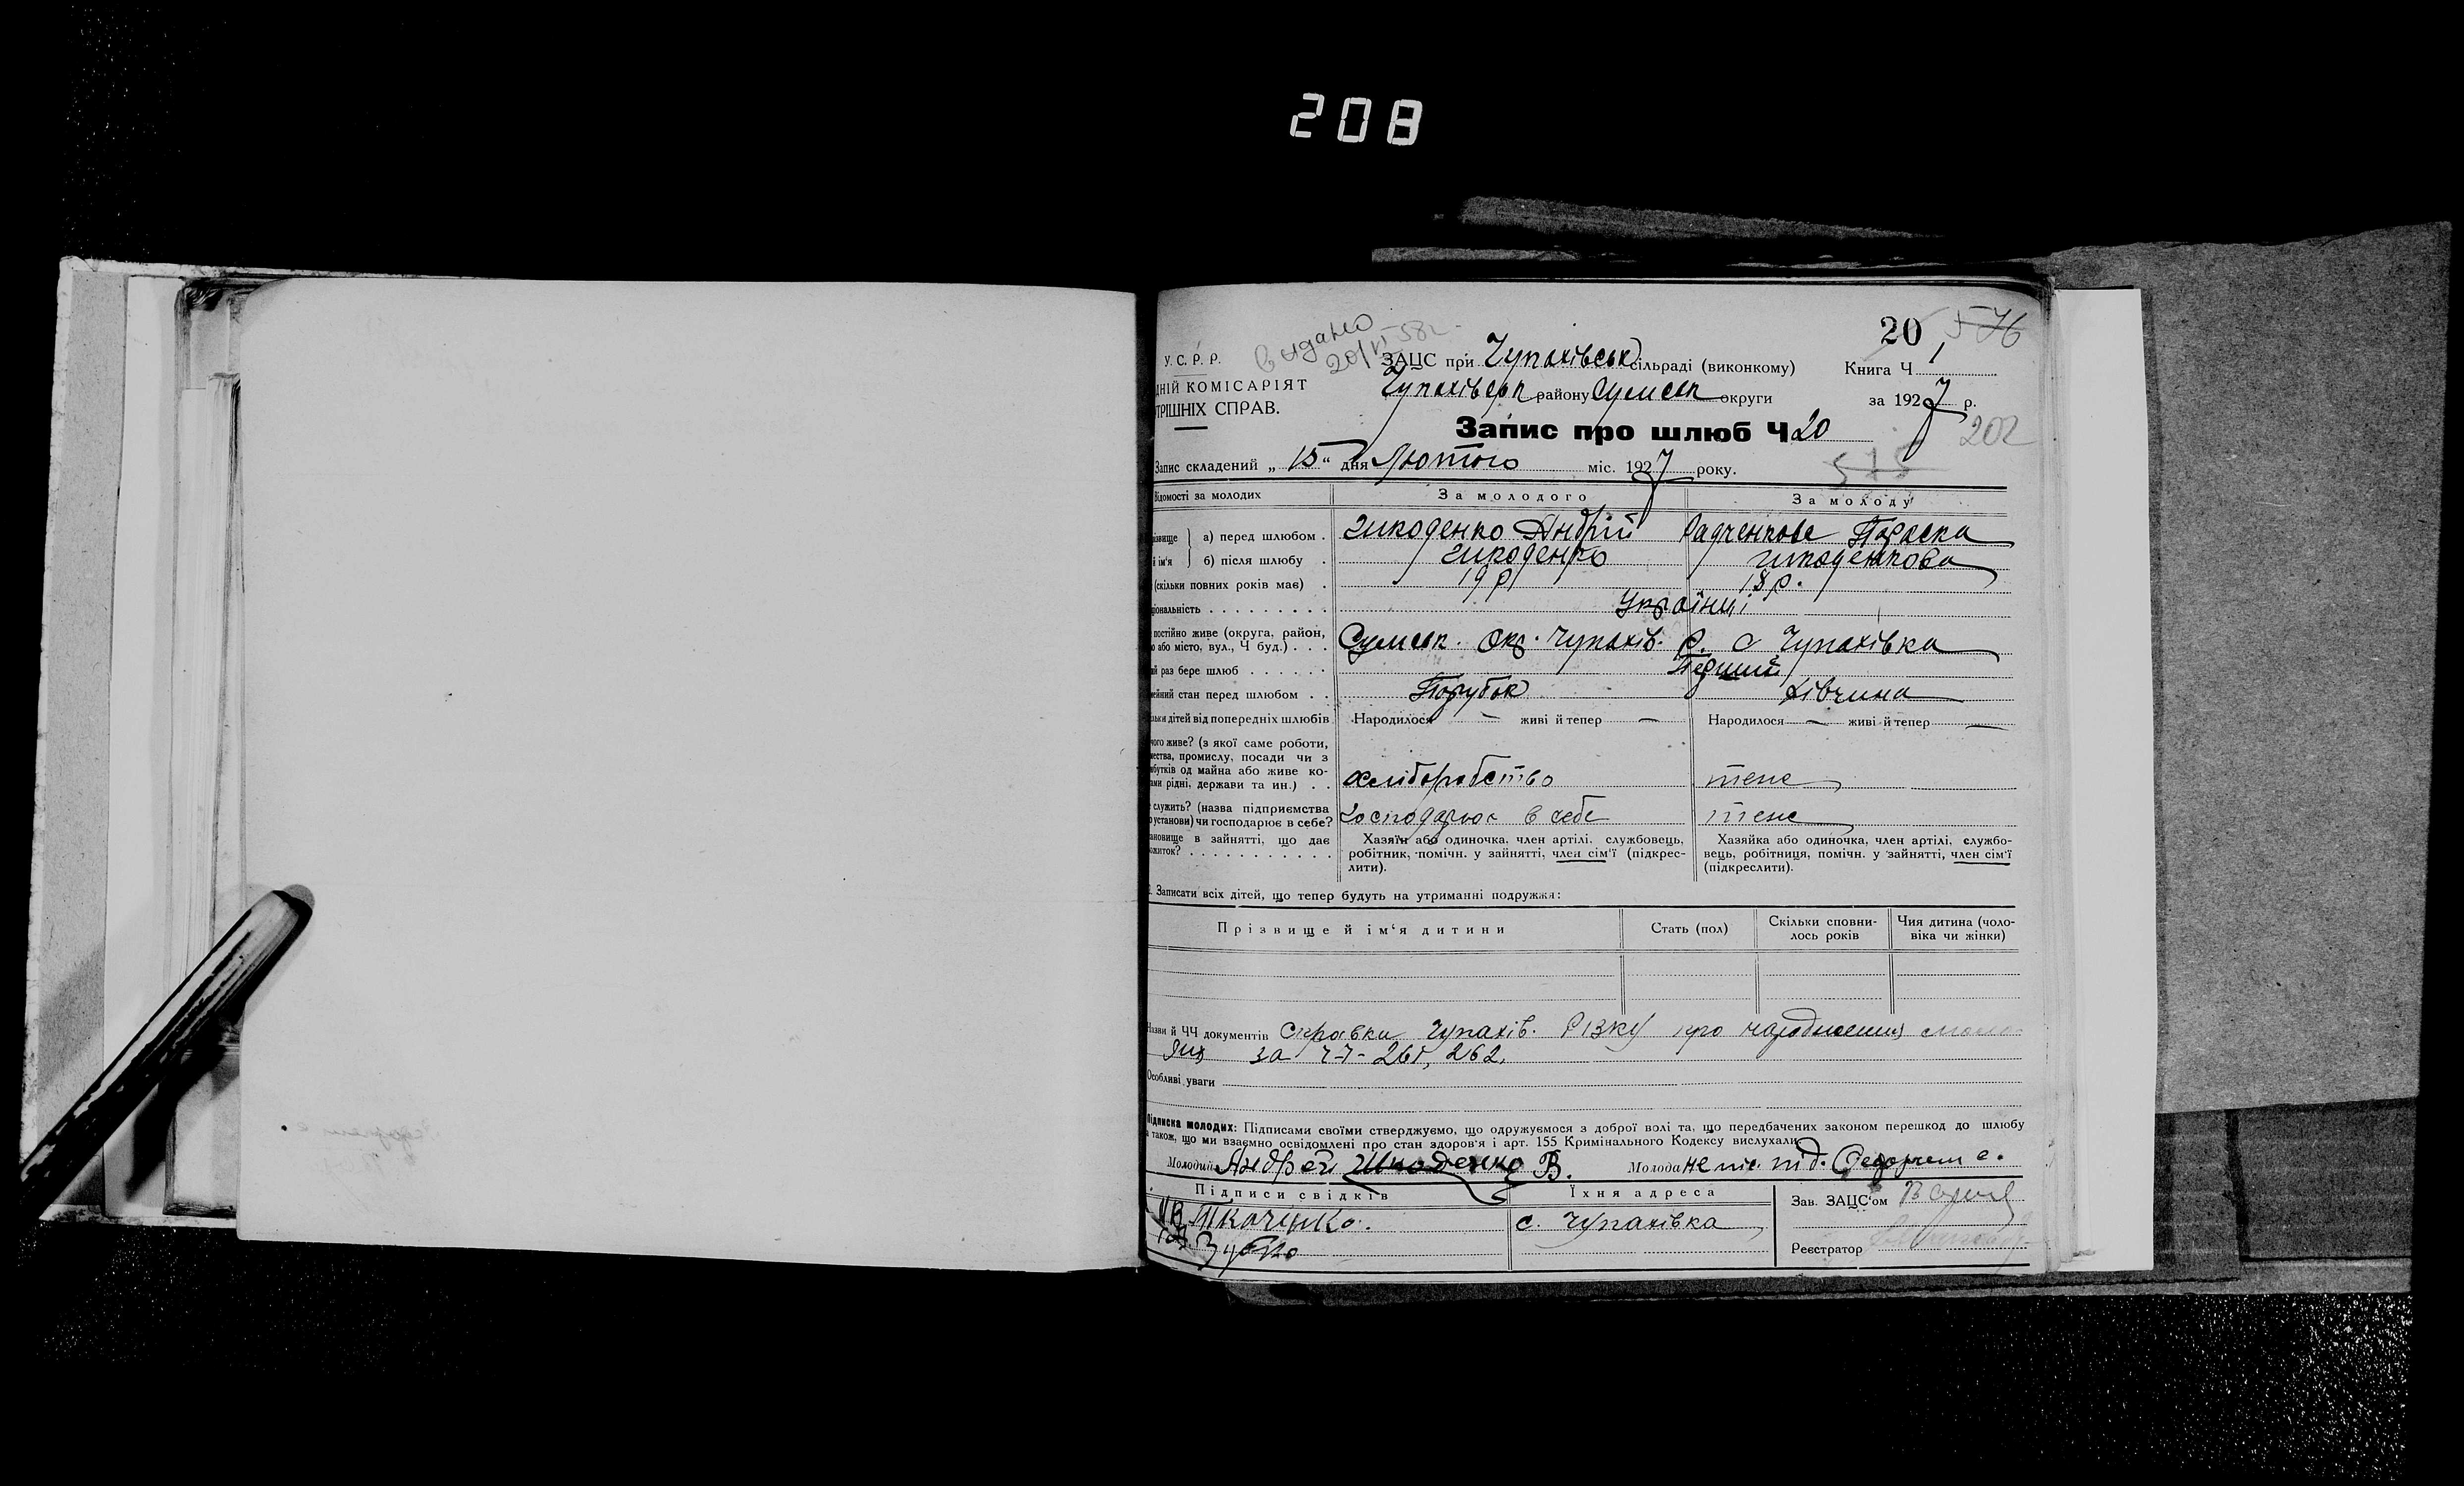 208
20 576
Видано
20/VI 58г.
У. С. Р. Р.
ЗАЦС при Чупахівськ сільраді (виконкому)
Книга Ч 1
ДНІЙ КОМІСАРІЯТ
Чупахівськ району Сумськ округи
за 1927 р.
ТРІШНІХ СПРАВ.
Запис про шлюб Ч 20
202
Запис складений „ 15 “ дня Лютого міс. 1927 року.
575
Відомості за молодих За молодого За молоду
ізвище а) перед шлюбом . Шкоденко Андрій Радченкова Параска
й ім'я б) після шлюбу . Шкоденко Шкоденкова
(скільки повних років має) . 19 р 18 р.
ціональність . . . . . . . . . Українці
постійно живе (округа, район,
о або місто, вул., Ч буд.) . . . Сумськ. Окр. Чупахів. Р. с Чупахівка
ий раз бере шлюб . . . . . . Перший
мейний стан перед шлюбом . . Парубок Дівчина
ільки дітей від попередніх шлюбів Народилося — живі й тепер — Народилося — живі й тепер —
чого живе? (з якої саме роботи,
мества, промислу, посади чи з
ибутків од майна або живе ко-
ами рідні, держави та ин.) . . хліборобство теж
служить? (назва підприємства
о установи) чи господарює в себе? Господарює в себе теж
ановище в зайнятті, що дає
ожиток? . . . . . . . . . . .
Хазяїн або одиночка, член артілі, службовець,
робітник, помічн. у зайнятті, член сім'ї (підкрес-
лити).
Хазяйка або одиночка, член артілі, службо-
вець, робітниця, помічн. у зайнятті, член сім'ї
(підкреслити).
. Записати всіх дітей, що тепер будуть на утриманні подружжя:
Прізвище й ім‘я дитини Стать (пол) Скільки сповни-
лось років Чия дитина (чоло-
віка чи жінки)
Назви й ЧЧ документів Справка Чупахів. РВКу про народження моло-
дих за ч-ч- 261, 262.
Особливі уваги
Підписка молодих: Підписами своїми стверджуємо, що одружуємося з доброї волі та, що передбачених законом перешкод до шлюбу
а також, що ми взаємно освідомлені про стан здоров'я і арт. 155 Кримінального Кодексу вислухали.
Молодий Андрей Шкоденко В. Молода
Підписи свідків Їхня адреса
Зав. ЗАЦС‘ом
Ткаченко. с. Чупахівка
Зубко
Реєстратор